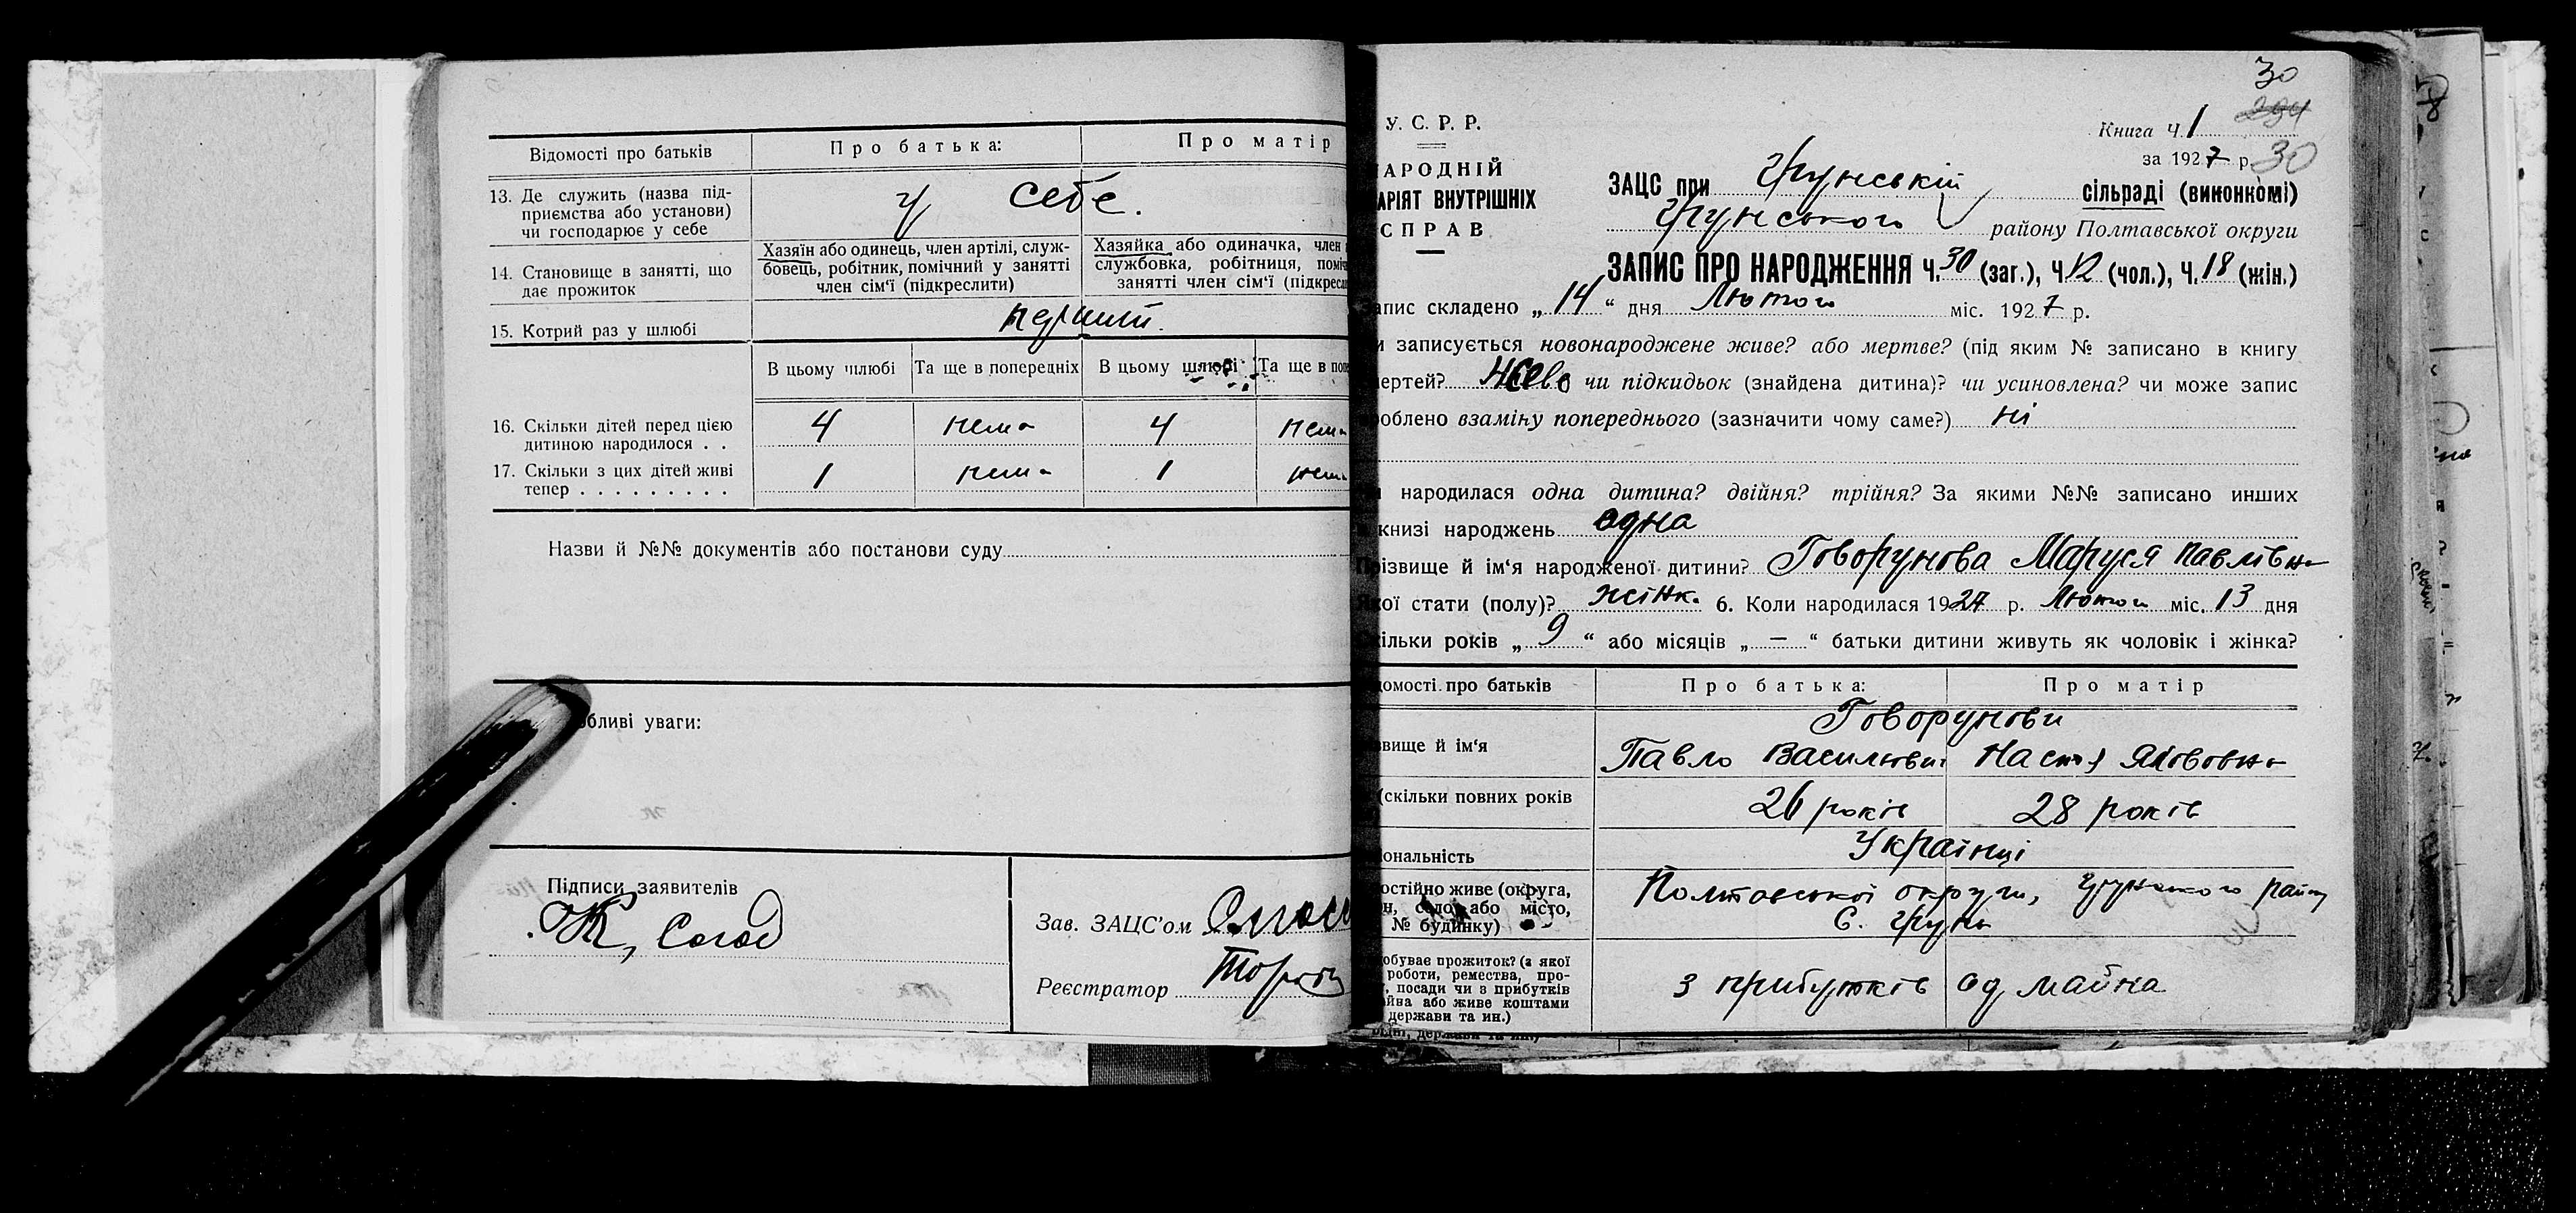 Відомості про батьків
Про батька:
Про матір
13. Де служить (назва під-
приємства або установи)
чи господарює у себе
у себе.
14. Становище в занятті, що
дає прожиток
Хазяїн або одинець, член артілі, служ-
бовець, робітник, помічний у занятті
член сім'ї (підкреслити)
Хазяйка або одиначка, член
службовка, робітниця, поміч
занятті член сім'ї (підкресл
15. Котрий раз у шлюбі
перший.
В цьому шлюбі Та ще в попередніх В цьому шлюбі Та ще в поп
16. Скільки дітей перед цією
дитиною народилося . .
4 нема 4 нема
17. Скільки з цих дітей живі
тепер . . . . . . . . .
1 нема 1 нема
Назви й №№ документів або постанови суду
обливі уваги:
Підписи заявителів
Зав. ЗАЦС'ом
Реєстратор
30
294
У. С. Р. Р.
Книга Ч. 1
за 1927 р. 30
АРОДНІЙ
АРІЯТ ВНУТРІШНІХ
СПРАВ
ЗАЦС при Грунській сільраді (виконкомі)
Грунського району Полтавської округи
ЗАПИС ПРО НАРОДЖЕННЯ Ч. 30 (заг.), Ч. 12 (чол.), Ч. 18 (жін.)
апис складено „14“ дня Лютого міс. 1927 р.
и записується новонароджене живе? або мертве? (під яким № записано в книгу
мертей? живе чи підкидьок (знайдена дитина)? чи усиновлена? чи може запис
роблено взаміну попереднього (зазначити чому саме?) ні
и народилася одна дитина? двійня? трійня? За якими №№ записано инших
книзі народжень одна
Прізвище й ім'я народженої дитини? Говорунова Маруся Павлівна
Якої стати (полу)? жінк. 6. Коли народилася 1927 р. Лютого міс. 13 дня
кільки років „9“ або місяців „—“ батьки дитини живуть як чоловік і жінка?
домості про батьків
Про батька:
Про матір
звище й ім'я
Говорунови
Павло Васильович Настя Якововна
(скільки повних років
26 років 28 років
іональність
Українці
остійно живе (округа,
н, село або місто,
№ будинку)
Полтавської округи, Грунського району
с. Грунь
обуває прожиток? (з якої
роботи, ремества, про-
, посади чи з прибутків
айва або живе коштами
держави та ин.)
з прибутків од майна